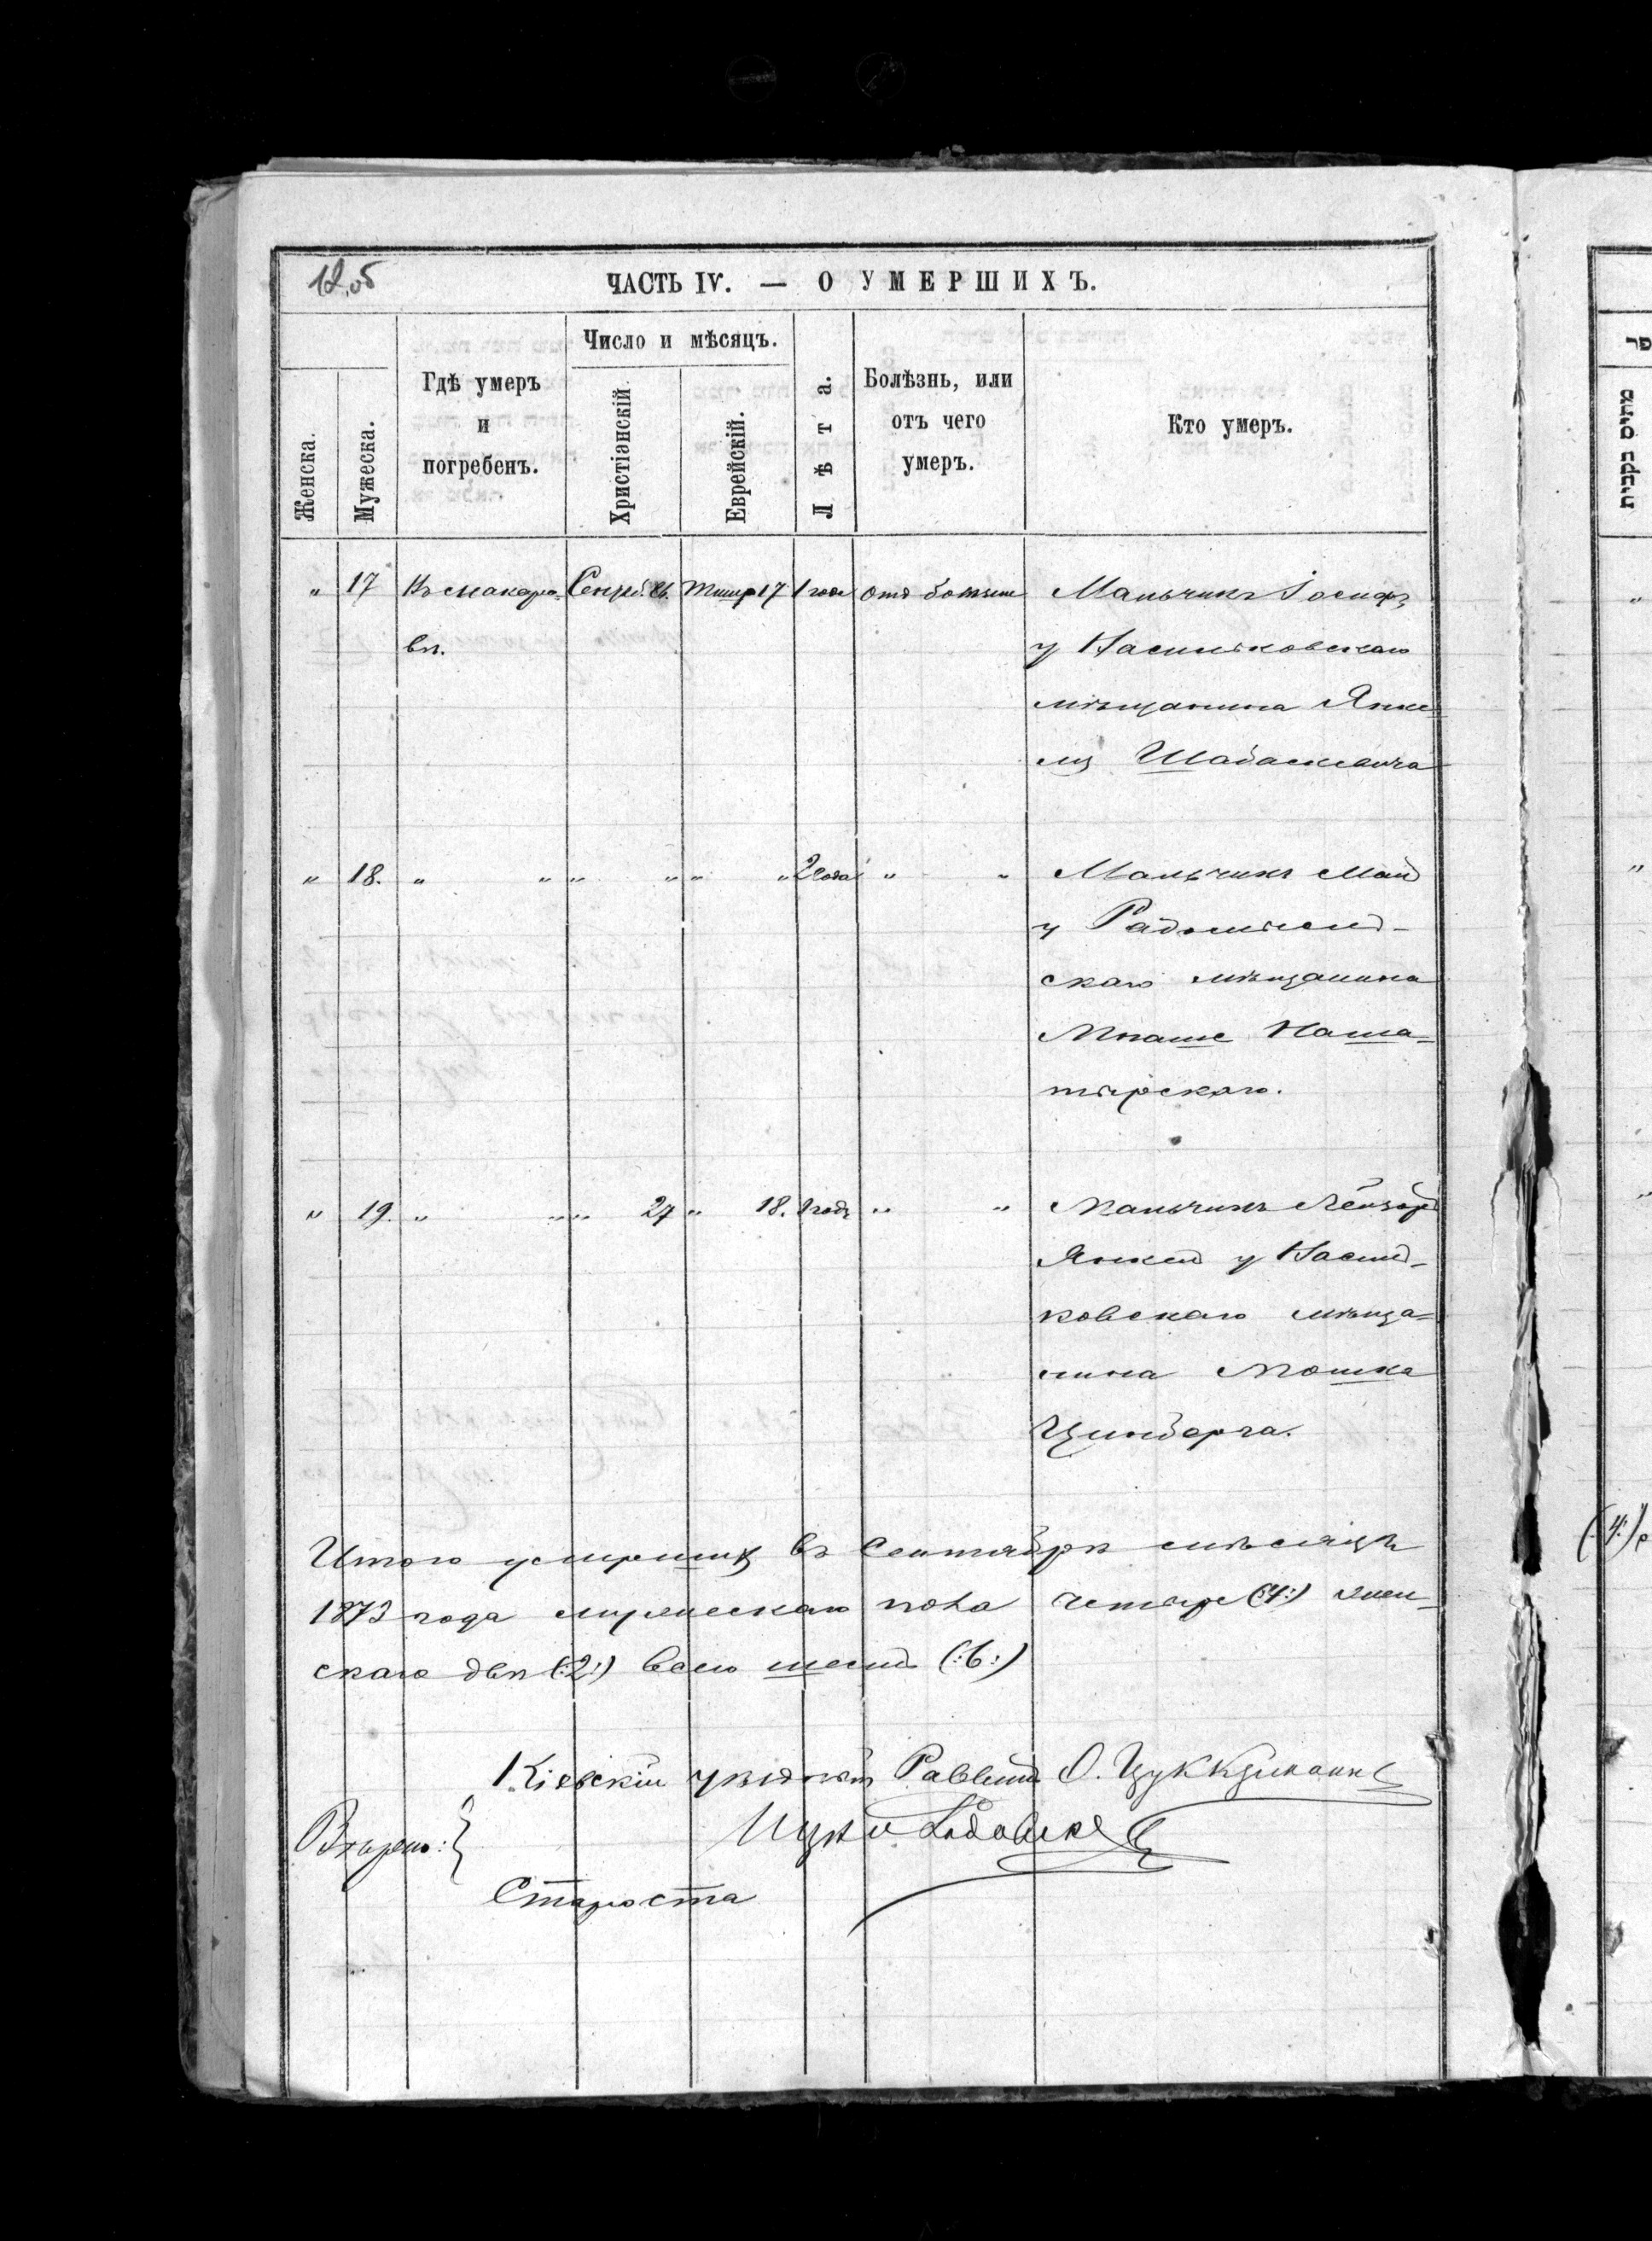 12 об
ЧАСТЬ IV. — О УМЕРШИХЪ.
Женска.
Мужеска.
Гдѣ умеръ
и
погребенъ.
Число и мѣсяцъ.
Христіанскій
Еврейскій.
Лѣта.
Болѣзнь, или
отъ чего
умеръ.
Кто умеръ.
" 17 Въ Макаро- Сентяб. Тишр 17 1 года отъ Мальчикъ Іосифъ
вѣ. у Васильковскаго
мѣщанина Янке-
ля
" 18. " " " " " " 2 года " " Мальчикъ
у Радомысль-
скаго мѣщанина
Мнаше Наша-
тырскаго.
" 19. " " " 27 " 18. 1 годъ " " Мальчикъ Лейзоръ
Янкель у Василь-
ковскаго мѣща-
нина Мошка
Цинберга.
Итого умершихъ въ Сентябрѣ мѣсяцѣ
1873 года мужескаго пола четыре (:4:) жен-
скаго двѣ (:2:) всего шесть (:6:)
Кіевскій уѣздный Раввинъ О. Цуккерманъ
Вѣрно:
Староста
פר
מתים
(:4:)